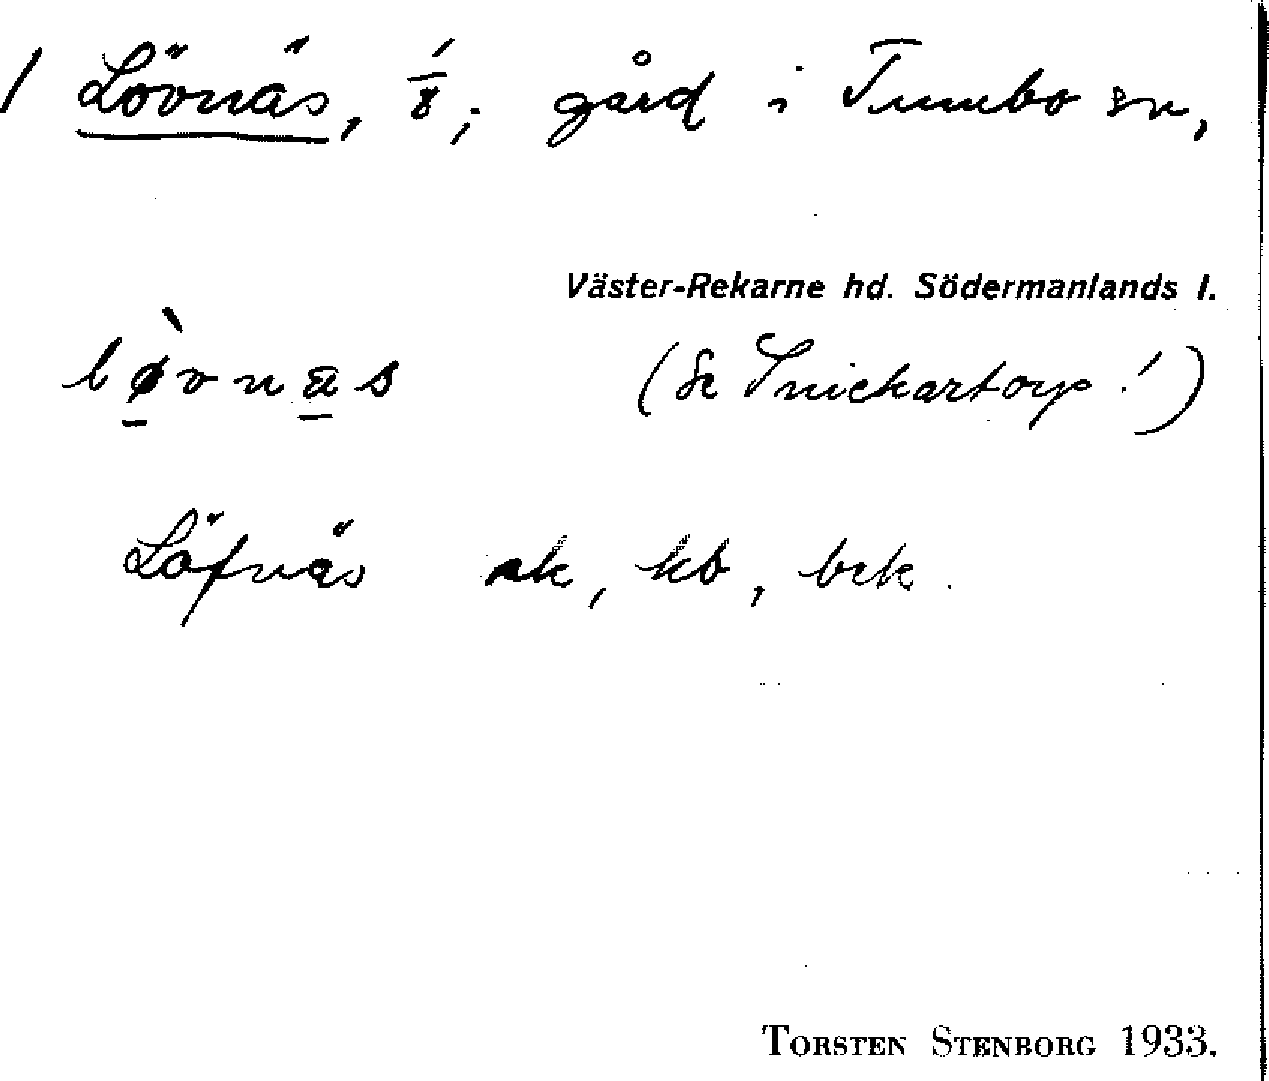 / Lövnäs, 1/8; gård i Tumbo sn,
Väster-Rekarne hd. Södermanlands l.
lø̱̀vna̱s (Se Snickartorp!)
Löfnäs ak, kb, brk.
TORSTEN STENBORG 1933.